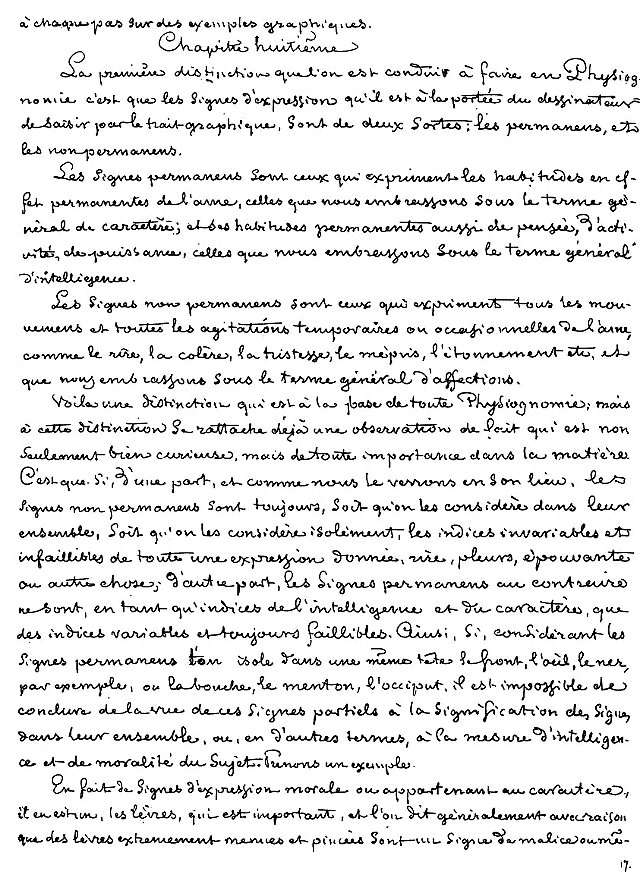 à chaque pas sur des exemples graphiques.
Chapitre huitième
La première distinction que l'on est conduit à faire en Physiog-
nomie c'est que les signes d'expression qu'il est à la portée du dessinateur
de saisir par le trait graphique, sont de deux sortes; les permanens, et
les non permanens.
Les signes permanens sont ceux qui expriment les habitudes en ef-
fet permanentes de l'ame, celles que nous embrassons sous le terme gé-
néral de caractère; et ses habitudes permanentes aussi de pensée, d'acti-
vité, de puissance, celles que nous embrassons sous le terme général
d'intelligence.
Les signes non permanens sont ceux qui expriment tous les mou-
vemens et toutes les agitations temporaires ou occasionnelles de l'ame,
comme le rire, la colère, la tristesse, le mépris, l'étonnement etc, et
que nous embrassons sous le terme général d'affections.
Voila une distinction qui est à la base de toute Physiognomie; mais
à cette distinction se rattache déjà une observation de fait qui est non
seulement bien curieuse, mais de toute importance dans la matière.
C'est que si, d'une part, et comme nous le verrons en son lieu, les
signes non permanens sont toujours, soit qu'on les considère dans leur
ensemble, soit qu'on les considère isolément, les indices invariables et
infaillibles de toute une expression donnée, rire, pleurs, épouvante
ou autre chose; d'autre part, les signes permanens au contraire
ne sont, en tant qu'indices de l'intelligence et du caractère, que
des indices variables et toujours faillibles. Ainsi, si, considérant les
signes permanens l'on isole dans une même tête le front, l'œil, le nez,
par exemple, ou la bouche, le menton, l'occiput, il est impossible de
conclure de la vue de ces signes partiels à la signification des signes
dans leur ensemble, ou, en d'autres termes, à la mesure d'intelligen-
ce et de moralité du sujet. Prenons un exemple.
En fait de signes d'expression morale ou appartenant au caractère,
il en est un, les lèvres, qui est important, et l'on dit généralement avec raison
que des lèvres extremement menues et pincées sont un signe de malice ou mé-
17.